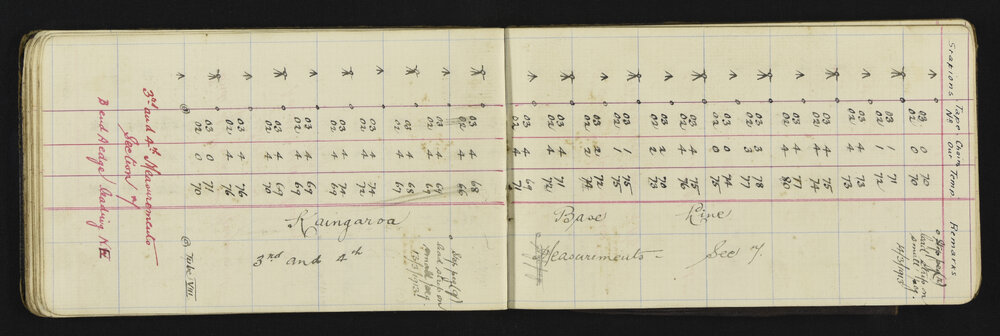 Stations Tape No Temp. Remarks
03 0 70
02 0 70
03 1 71
02 1 72
03 4 73
02 4 73
03 4 74
02 4 75
4 77
02 4 80
03 3 78
02 3 77
03 0 74
02 0 75
03 4 75
02 4 76
02 2 70
02 2 73
03 1 75
02 1 75
2 72
02 2 72
03 4 71
02 4 72
03 4 69
02 4 71
small peg.
14/3/1913
Base Line
Measurements - Sec 7.
03 4 68
02 4 66
03 4 69
02 4
03 4 68
4 69
03 4 72
02 4 74
03 4 72
02 4
03 4
02 4 69
03 4 69
02 4 70
03 4 76
02 4 76
03 0 71
02 0 70
and strip on
small peg.
13/3/1913
Kaingaroa
3rd and 4th
@ Tube VIII.
3rd and 4th Measurements
Section 7
B end A edge leading N.E